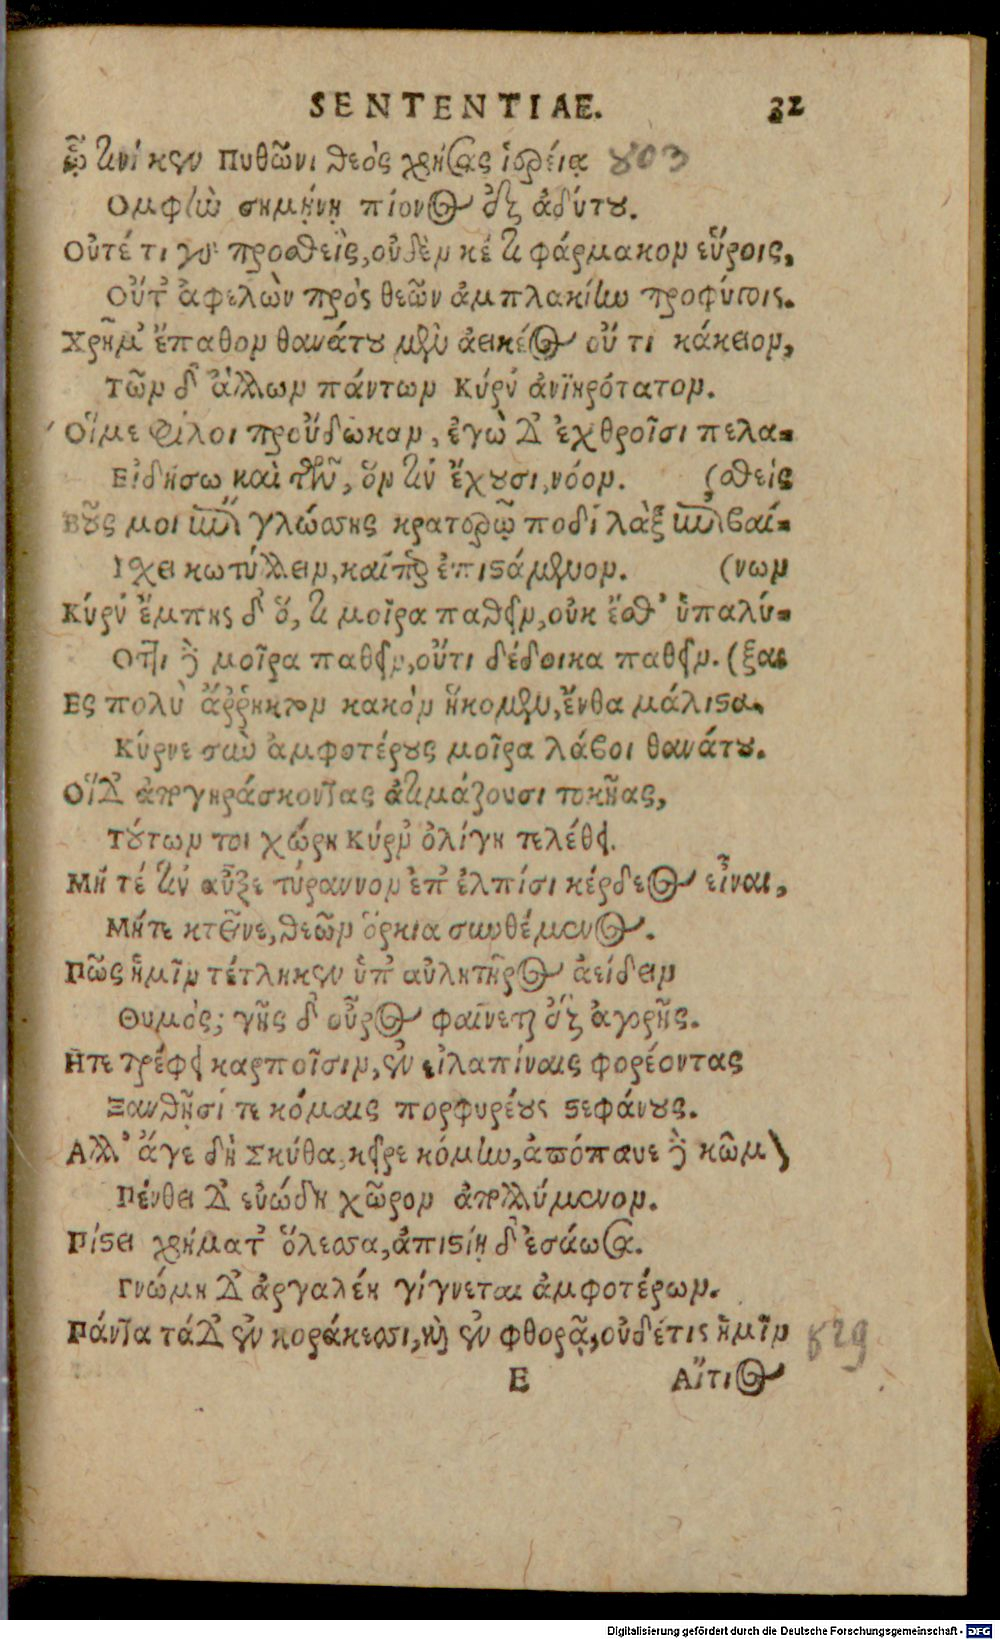 SENTENTIAE. 32
ᾧ τινί κεν Πυθῶνι θεὸς χρήσας ἱερείᾳ 803
Ομφὴν σημήνῃ πίονος ἐξ ἀδύτου.
Οὔτέ τι γὸ προσθεὶς, οὐδὲν κέ τι φάρμακον εὕροις,
Οὔτ᾽ ἀφελὼν πρὸς θεῶν ἀμπλακίην προφύγοις.
Χρῆμ᾽ ἔπαθον θανάτου μὲν ἀεικέος οὔ τι κάκειον,
Τῶν δ᾽ ἄλλων πάντων Κύρν᾽ ἀνϊηρότατον.
Οἵ με φίλοι προὔδωκαν, ἐγὼ δ᾽ ἐχθροῖσι πελα-
Εἰδήσω καὶ τῶν, ὃν τιν᾽ ἔχουσι, νόον. (σθεὶς
Βοῦς μοι ἐπὶ γλώσσης κρατερῷ ποδὶ λὰξ ἐπιβαί-
Ισχει κωτίλλειν, καίπερ ἐπιστάμενον. (νων
Κύρν᾽ ἔμπης δ᾽ ὅ, τι μοῖρα παθεῖν, οὐκ ἔσθ᾽ ὑπαλύ-
Οττι δὲ μοῖρα παθεῖν, οὔτι δέδοικα παθεῖν. (ξαι
Ες πολὺ ἄῤῥηκτον κακὸν ἥκομεν, ἔνθα μάλιστα.
Κύρνε σὺν ἀμφοτέρους μοῖρα λάβοι θανάτου.
Οἵ δ᾽ ἀπογηράσκοντας ἀτιμάζουσι τοκῆας,
Τούτων τοι χώρη Κύρν᾽ ὀλίγη τελέθει.
Μή τέ τιν᾽ αὖξε τύραννον ἐπ᾽ ἐλπίσι κέρδεος εἶναι,
Μήτε κτεῖνε, θεῶν ὅρκια συνθέμενος.
Πῶς ἡμῖν τέτληκεν ὑπ᾽ αὐλητῆρος ἀείδειν
Θυμός; γῆς δ᾽ οὖρος φαίνεται ἐξ ἀγορῆς.
Ητε τρέφει καρποῖσιν, ἐν εἰλαπίναις φορέοντας
Ξανθῆσί τε κόμαις πορφυρέους στεφάνους.
Αλλ᾽ ἄγε δὴ Σκύθα, κεῖρε κόμην, ἀπόπαυε δὲ κῶμον
Πένθει δ᾽ εὐώδη χῶρον ἀπολλύμενον.
Πίστει χρήματ᾽ ὄλεσσα, ἀπιστίῃ δ᾽ ἐσάωσα.
Γνώμη δ᾽ ἀργαλέη γίγνεται ἀμφοτέρων.
Πάντα τάδ᾽ ἐν κοράκεσσι, καὶ ἐν φθορᾷ, οὐδέτις ἡμῖν 829
E Αἴτιος
Digitalisierung gefördert durch die Deutsche Forschungsgemeinschaft - DFG